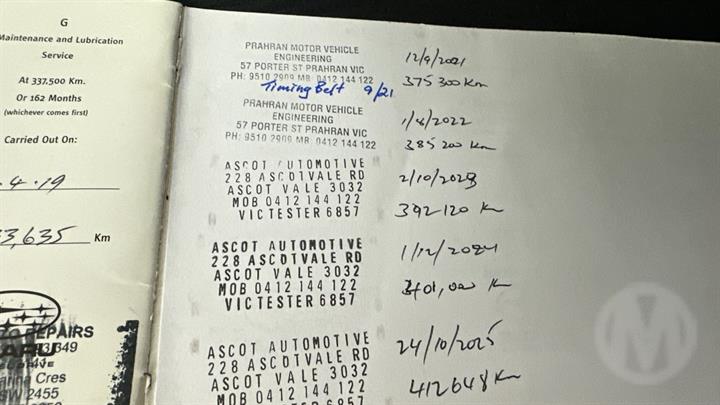 G
Maintenance and Lubrication
Service
At 337,500 Km.
Or 162 Months
(whichever comes first)
Carried Out On:
.4.19
3,635 Km
REPAIRS
ARU 349
Cres
2455
PRAHRAN MOTOR VEHICLE
ENGINEERING
57 PORTER ST PRAHRAN VIC
PH: 9510 2909 MB 0412 144 122
12/9/2021
375300 Km
Timing Belt 9/21
PRAHRAN MOTOR VEHICLE
ENGINEERING
57 PORTER ST PRAHRAN VIC
PH: 9510 2909 MB 0412 144 122
1/8/2022
385200 Km
ASCOT AUTOMOTIVE
228 ASCOTVALE RD
ASCOT VALE 3032
MOB 0412 144 122
VICTESTER 6857
2/10/2023
392120 Km
ASCOT AUTOMOTIVE
228 ASCOTVALE RD
ASCOT VALE 3032
MOB 0412 144 122
VICTESTER 6857
1/12/2024
401,000 Km
ASCOT AUTOMOTIVE
228 ASCOTVALE RD
ASCOT VALE 3032
MOB 0412 144 122
VICTESTER 6857
24/10/2025
412648 Km
M